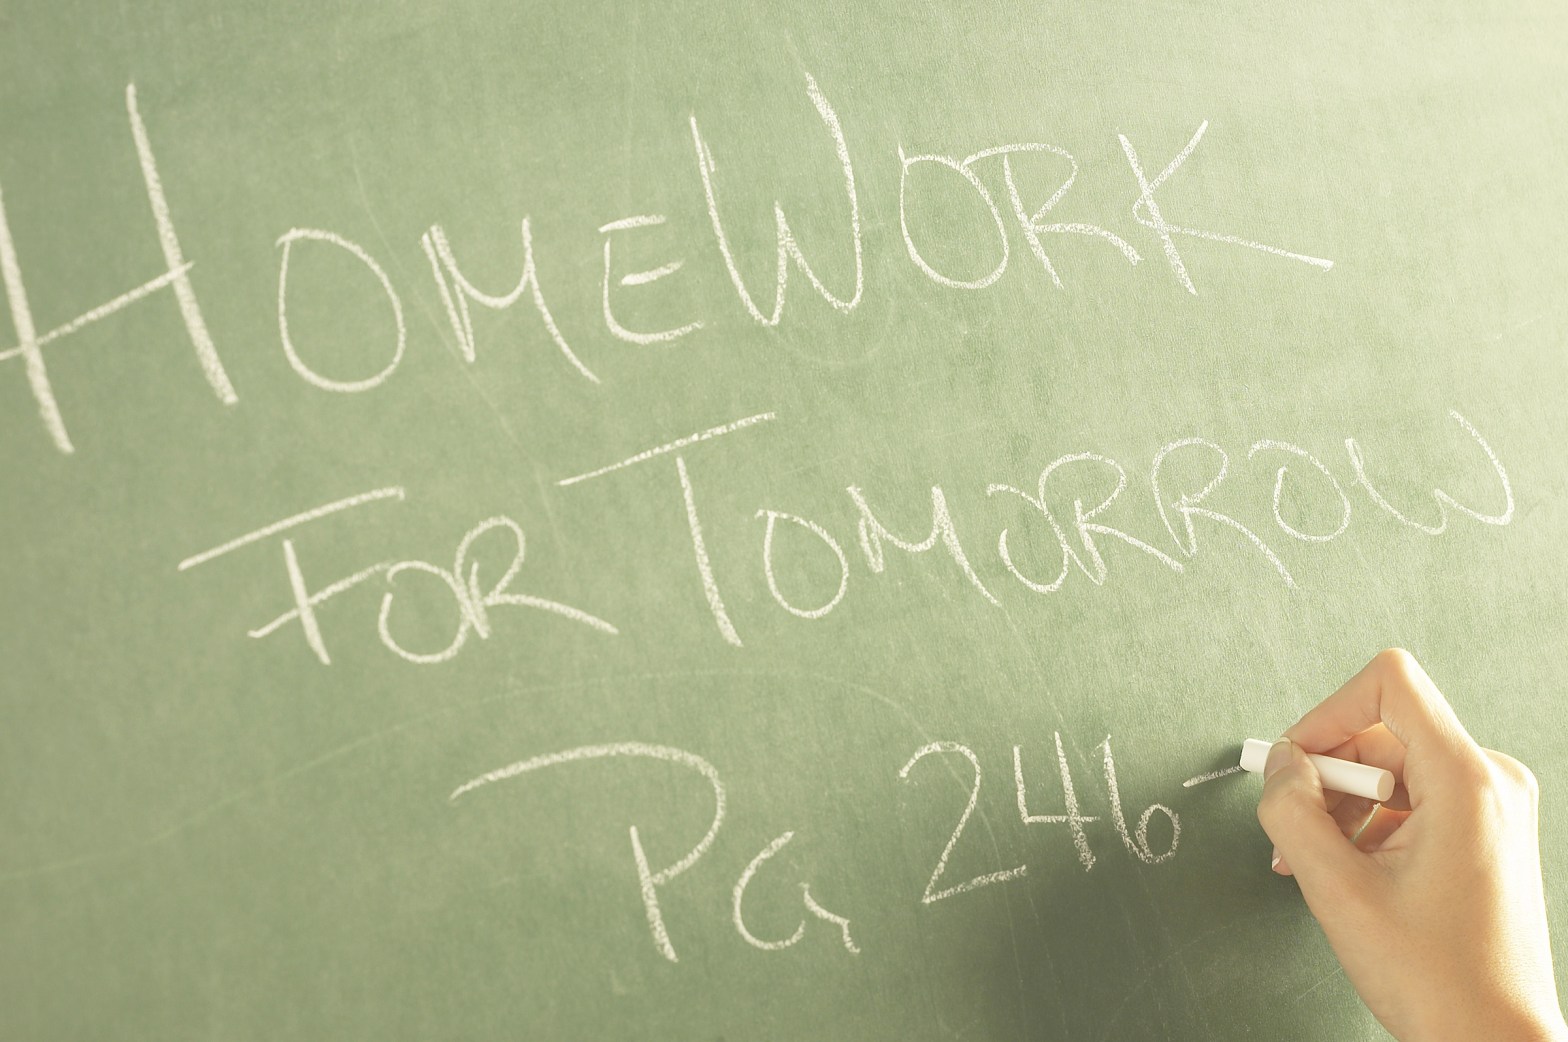 HOMEWORK
FOR TOMORROW
PG 246-